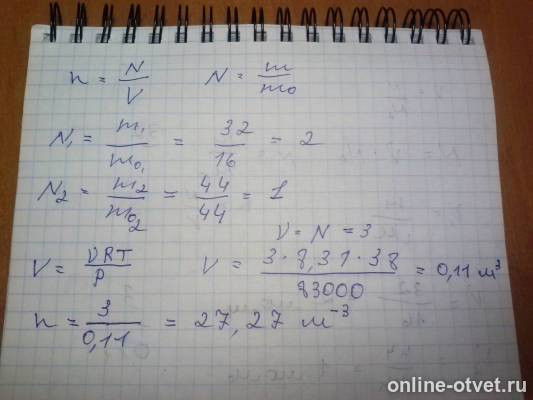 n = N/V N = m/m₀
N₁ = m₁/m₀₁ = 32/16 = 2
N₂ = m₂/m₀₂ = 44/44 = 1
ν = N = 3
V = νRT/P V = 3·8,31·38/83000 = 0,11 м³
n = 3/0,11 = 27,27 м⁻³
online-otvet.ru